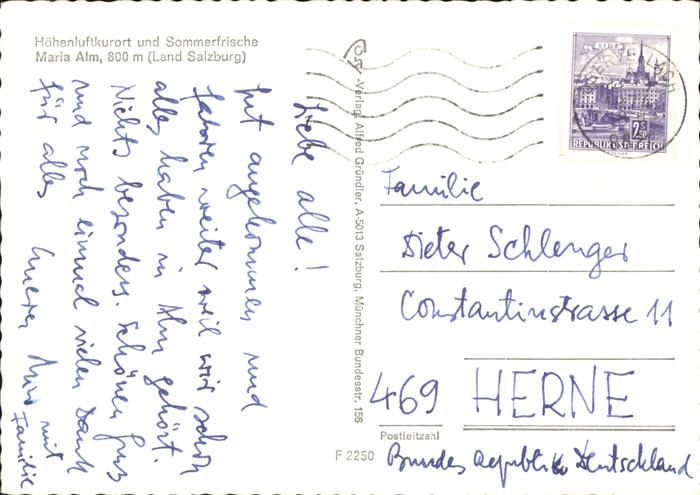 Höhenluftkurort und Sommerfrische
Maria Alm, 800 m (Land Salzburg)
Liebe alle!
Gut angekommen und
fahren weiter weil wir schon
alles haben in Alm gehört.
Nichts besonders. Schönen Gruss
und noch einmal vielen Dank
für alles
mit
Familie
-Verlag, Alfred Gründler, A-5013 Salzburg, Münchner Bundesstr. 156
LINZ
2.50
REPUBLIK ÖSTERREICH
Familie
Dieter Schlenger
Constantinstrasse 11
469 HERNE
Postleitzahl
F 2250
Bundesrepublik Deutschland